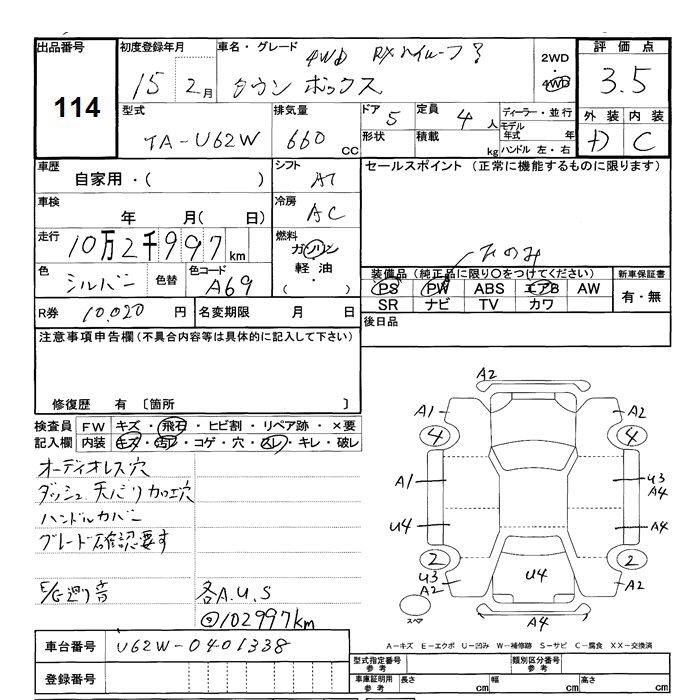 出品番号 初度登録年月 車名・グレード 評価点
4WD RXハイルーフ 2WD・4WD
114 15 2月 タウンボックス 3.5
型式 排気量 ドア 5 定員 4人 ディーラー・並行 外装 内装
TA-U62W 660cc 形状 積載 kg モデル年式 年 ハンドル 左・右 D C
車歴 自家用・( ) シフト AT セールスポイント (正常に機能するものに限ります)
車検 年 月( 日) 冷房 AC
走行 10万2千997km 燃料 ガソリン 軽油 ( ・ ) のみ
色 シルバー 色替 色コード A69
装備品 (純正品に限り○をつけてください) 新車保証書
PS PW ABS エアB AW 有・無
SR ナビ TV カワ
R券 10,020円 名変期限 月 日 後日品
注意事項申告欄(不具合内容等は具体的に記入して下さい)
修復歴 有 〔箇所 〕
検査員 FW キズ・飛石・ヒビ割・リペア跡・×要
記入欄 内装 キズ・汚れ・コゲ・穴・スレ・キレ・破レ
オーディオレス穴
ダッシュ、天バリ加工穴
ハンドルカバー
グレード確認要す
E/G廻り音 各A.U.S
102997km
車台番号 U62W-0401338
登録番号
A2
A1 A2
4 4
A1 U3 A4
U4 A4
2 2
U3 A2 U4 A2
スペア A4
A-キズ E-エクボ U-凹み W-補修跡 S-サビ C-腐食 XX-交換済
型式指定番号 参考 類別区分番号 参考
車庫証明用 参考 長さ cm 幅 cm 高さ cm